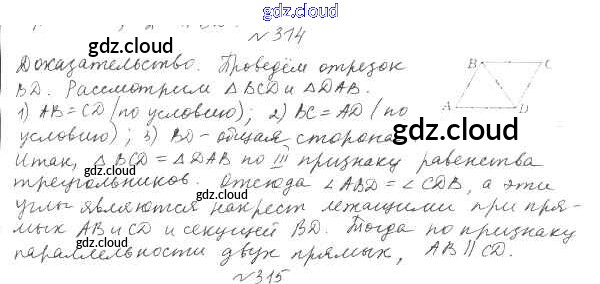 gdz.cloud
gdz.cloud
№314
Доказательство. Проведём отрезок
BD. Рассмотрим △BCD и △DAB.
B C
1) AB=CD (по условию); 2) BC=AD (по
A D
условию); 3) BD - общая сторона
gdz.cloud
gdz.cloud
Итак, △BCD = △DAB по III признаку равенства
треугольников. Отсюда ∠ABD = ∠CDB, а эти
gdz.cloud
углы являются накрест лежащими при пря-
мых AB и CD и секущей BD. Тогда по признаку
gdz.cloud
параллельности двух прямых, AB || CD.
№315